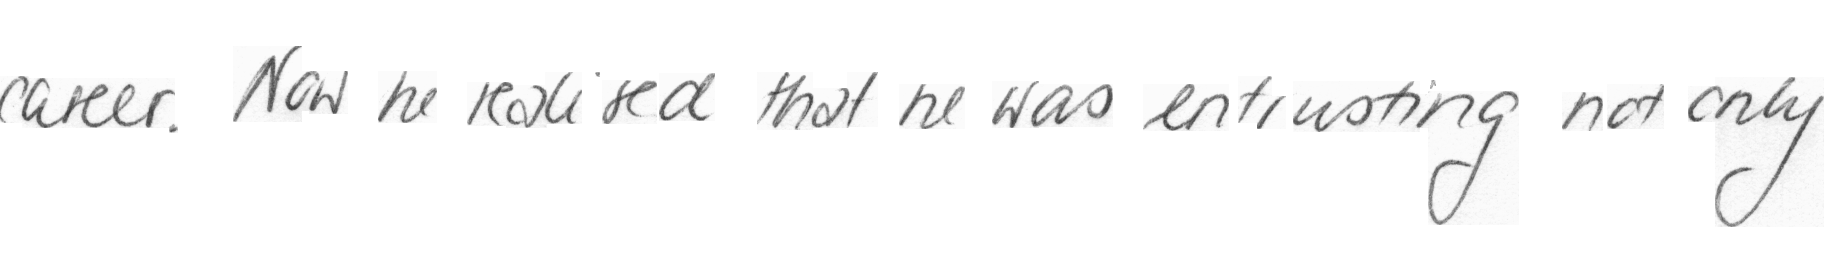 career. Now he realised that he was entrusting not only